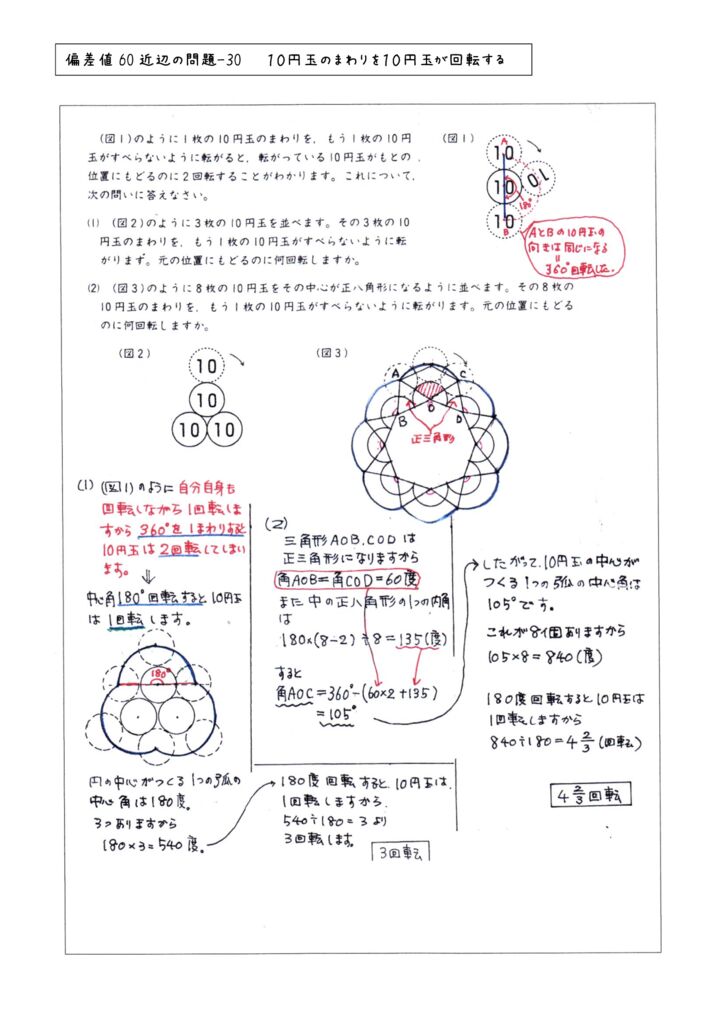 偏差値60近辺の問題-30　10円玉のまわりを10円玉が回転する
(図1)のように1枚の10円玉のまわりを，もう1枚の10円
玉がすべらないように転がると，転がっている10円玉がもとの，
位置にもどるのに2回転することがわかります。これについて，
次の問いに答えなさい。
(図1)
A
10
10
10
10
180°
B
AとBの10円玉の
向きは同じになる
＝
360°回転した
(1) (図2)のように3枚の10円玉を並べます。その3枚の10
円玉のまわりを，もう1枚の10円玉がすべらないように転
がります。元の位置にもどるのに何回転しますか。
(2) (図3)のように8枚の10円玉をその中心が正八角形になるように並べます。その8枚の
10円玉のまわりを，もう1枚の10円玉がすべらないように転がります。元の位置にもどる
のに何回転しますか。
(図2)
10
10
10 10
(図3)
A C
B O D
正三角形
(1) (図1)のように自分自身も
回転しながら1回転しま
すから360°を1まわりすると
10円玉は2回転してしまい
ます。
⇓
中心角180°回転すると10円玉
は1回転します。
180°
円の中心がつくる1つの弧の
中心角は180度。
3つありますから
180×3=540度。
180度回転すると、10円玉は、
1回転しますから、
540÷180=3より
3回転します。
3回転
(2)
三角形AOB、CODは
正三角形になりますから
角AOB=角COD=60度
また中の正八角形の1つの内角
は
180×(8-2)÷8=135(度)
すると
角AOC=360°-(60×2+135)
=105°
したがって、10円玉の中心が
つくる1つの弧の中心角は
105°です。
これが8個ありますから
105×8=840(度)
180度回転すると10円玉は
1回転しますから
840÷180=4 2/3(回転)
4 2/3回転